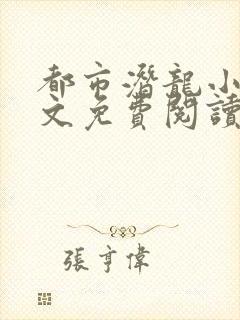 都市潛龍小
文免費閱讀
張亨偉